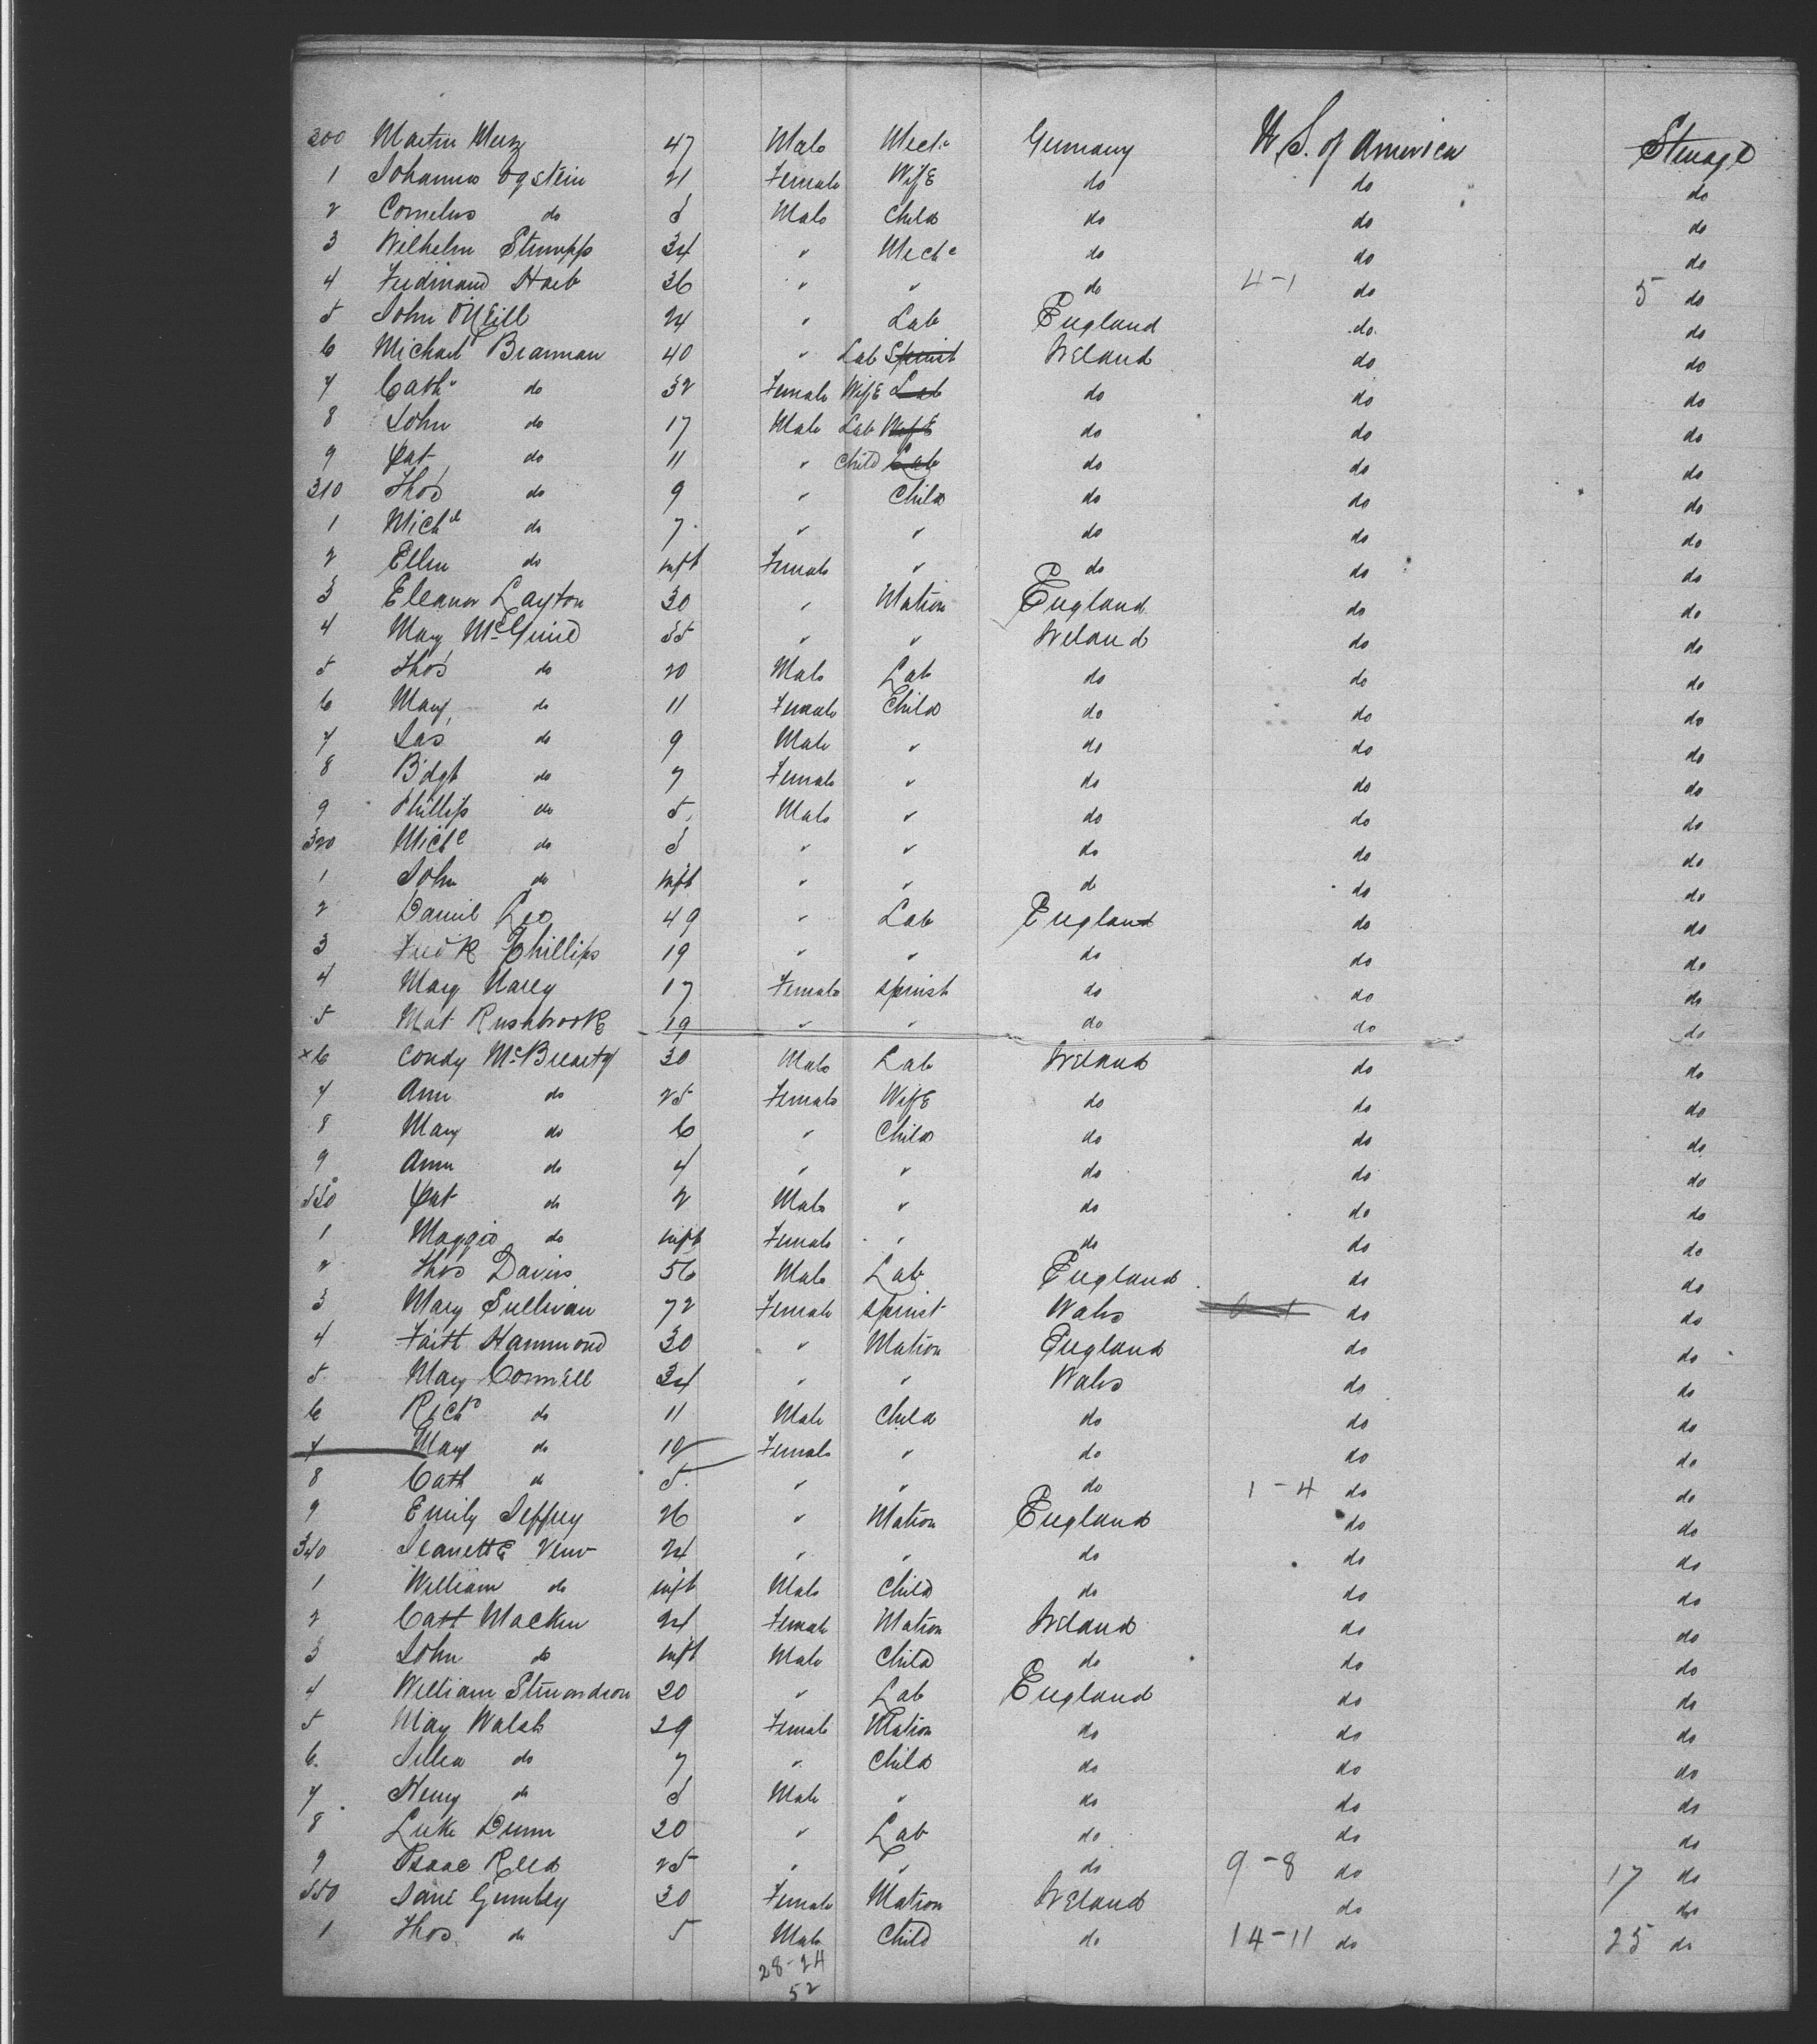 300 Martin Merz 47 Male Mech. Germany U S. of America Steerage
1 Johanna Ogstein 21 Female Wife do do do
2 Cornelius do 3 Male Child do do do
3 Wilhelm Strumpfs 34 " Mech. do do do
4 Ferdinand Haeb 36 " " do 4-1 do 5 do
5 John O'Neill 24 " Lab England do do
6 Michael Brannan 40 " Lab Spinst Ireland do do
7 Cath. do 32 Female Wife Lab do do do
8 John do 17 Male Lab Wife do do do
9 Pat do 11 " Child Lab do do do
310 Thos do 9 " Child do do do
1 Michl do 7 " " do do do
2 Ellen do inft Female " do do do
3 Eleanor Layton 30 " Matron England do do
4 Mary McGuire 35 " " Ireland do do
5 Thos do 20 Male Lab do do do
6 Mary do 11 Female Child do do do
7 Jas do 9 Male " do do do
8 Bdgt do 7 Female " do do do
9 Phillip do 5 Male " do do do
320 Michl do 3 " " do do do
1 John do inft " " do do do
2 Daniel Leo 49 " Lab England do do
3 Fredk Phillips 19 " " do do do
4 Mary Narey 17 Female Spinst do do do
5 Mat Rushbrook 19 " " do do do
x 6 Condy McBrearty 30 Male Lab Ireland do do
7 Ann do 25 Female Wife do do do
8 Mary do 6 " Child do do do
9 Ann do 4 " " do do do
330 Pat do 2 Male " do do do
1 Maggie do inft Female " do do do
2 Thos Davies 56 Male Lab England do do
3 Mary Sullivan 72 Female Spinst Wales do do
4 Faith Hammond 30 " Matron England do do
5 Mary Connell 34 " " Wales do do
6 Richd do 11 Male Child do do do
7 Mary do 10 Female " do do do
8 Cath do 5 " " do 1-4 do do
9 Emily Jeffrey 26 " Matron England do do
340 Jeanette Venn 24 " " do do do
1 William do inft Male Child do do do
2 Cath Macken 24 Female Matron Ireland do do
3 John do inft Male Child do do do
4 William 20 " Lab England do do
5 May Walsh 29 Female Matron do do do
6 do 7 " Child do do do
7 Henry do 3 Male " do do do
8 Luke Dunn 20 " Lab do do do
9 Isaac Reed 25 " " do 9-8 do 17 do
350 Jane Gumley 30 Female Matron Ireland do do
1 Thos do 5 Male Child do 14-11 do 25 do
28-24
52